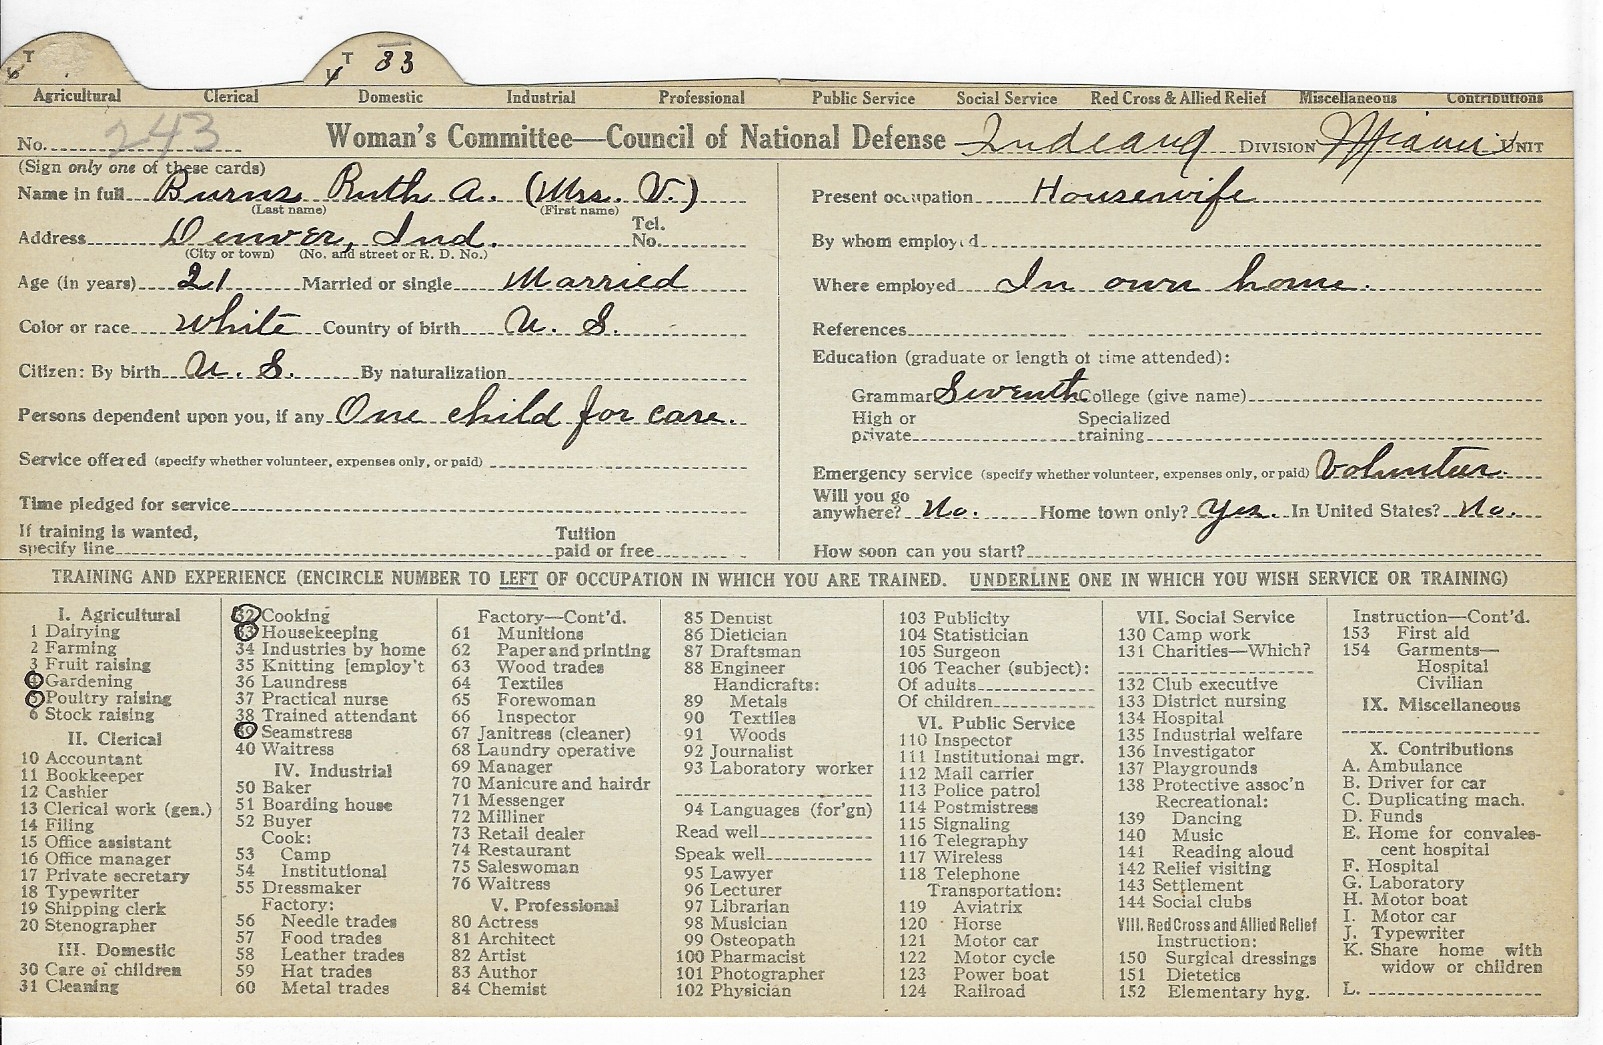 T 33
Agricultural Clerical Domestic Industrial Professional Public Service Social Service Red Cross & Allied Relief Miscellaneous Contributions
No. 243 Woman's Committee—Council of National Defense Indiana DIVISION Miami UNIT
(Sign only one of these cards)
Name in full Burns Ruth A. (Mrs. V.)
(Last name) (First name)
Address Denver, Ind. Tel. No.
(City or town) (No. and street or R. D. No.)
Age (in years) 21 Married or single Married
Color or race White Country of birth U. S.
Citizen: By birth U. S. By naturalization
Persons dependent upon you, if any One child for care.
Service offered (specify whether volunteer, expenses only, or paid)
Time pledged for service
If training is wanted,
specify line Tuition paid or free
Present occupation Housewife
By whom employed
Where employed In own home.
References
Education (graduate or length of time attended):
Grammar Seventh College (give name)
High or private Specialized training
Emergency service (specify whether volunteer, expenses only, or paid) Volunteer.
Will you go anywhere? No. Home town only? Yes. In United States? No.
How soon can you start?
TRAINING AND EXPERIENCE (ENCIRCLE NUMBER TO LEFT OF OCCUPATION IN WHICH YOU ARE TRAINED. UNDERLINE ONE IN WHICH YOU WISH SERVICE OR TRAINING)
I. Agricultural
1 Dairying
2 Farming
3 Fruit raising
4 Gardening
5 Poultry raising
6 Stock raising
II. Clerical
10 Accountant
11 Bookkeeper
12 Cashier
13 Clerical work (gen.)
14 Filing
15 Office assistant
16 Office manager
17 Private secretary
18 Typewriter
19 Shipping clerk
20 Stenographer
III. Domestic
30 Care of children
31 Cleaning
32 Cooking
33 Housekeeping
34 Industries by home
35 Knitting [employ't
36 Laundress
37 Practical nurse
38 Trained attendant
39 Seamstress
40 Waitress
IV. Industrial
50 Baker
51 Boarding house
52 Buyer
Cook:
53 Camp
54 Institutional
55 Dressmaker
Factory:
56 Needle trades
57 Food trades
58 Leather trades
59 Hat trades
60 Metal trades
Factory—Cont'd.
61 Munitions
62 Paper and printing
63 Wood trades
64 Textiles
65 Forewoman
66 Inspector
67 Janitress (cleaner)
68 Laundry operative
69 Manager
70 Manicure and hairdr
71 Messenger
72 Milliner
73 Retail dealer
74 Restaurant
75 Saleswoman
76 Waitress
V. Professional
80 Actress
81 Architect
82 Artist
83 Author
84 Chemist
85 Dentist
86 Dietician
87 Draftsman
88 Engineer
Handicrafts:
89 Metals
90 Textiles
91 Woods
92 Journalist
93 Laboratory worker
94 Languages (for'gn)
Read well
Speak well
95 Lawyer
96 Lecturer
97 Librarian
98 Musician
99 Osteopath
100 Pharmacist
101 Photographer
102 Physician
103 Publicity
104 Statistician
105 Surgeon
106 Teacher (subject):
Of adults
Of children
VI. Public Service
110 Inspector
111 Institutional mgr.
112 Mail carrier
113 Police patrol
114 Postmistress
115 Signaling
116 Telegraphy
117 Wireless
118 Telephone
Transportation:
119 Aviatrix
120 Horse
121 Motor car
122 Motor cycle
123 Power boat
124 Railroad
VII. Social Service
130 Camp work
131 Charities—Which?
132 Club executive
133 District nursing
134 Hospital
135 Industrial welfare
136 Investigator
137 Playgrounds
138 Protective assoc'n
Recreational:
139 Dancing
140 Music
141 Reading aloud
142 Relief visiting
143 Settlement
144 Social clubs
VIII. Red Cross and Allied Relief
Instruction:
150 Surgical dressings
151 Dietetics
152 Elementary hyg.
Instruction—Cont'd.
153 First aid
154 Garments—
Hospital
Civilian
IX. Miscellaneous
X. Contributions
A. Ambulance
B. Driver for car
C. Duplicating mach.
D. Funds
E. Home for convales-
cent hospital
F. Hospital
G. Laboratory
H. Motor boat
I. Motor car
J. Typewriter
K. Share home with
widow or children
L.